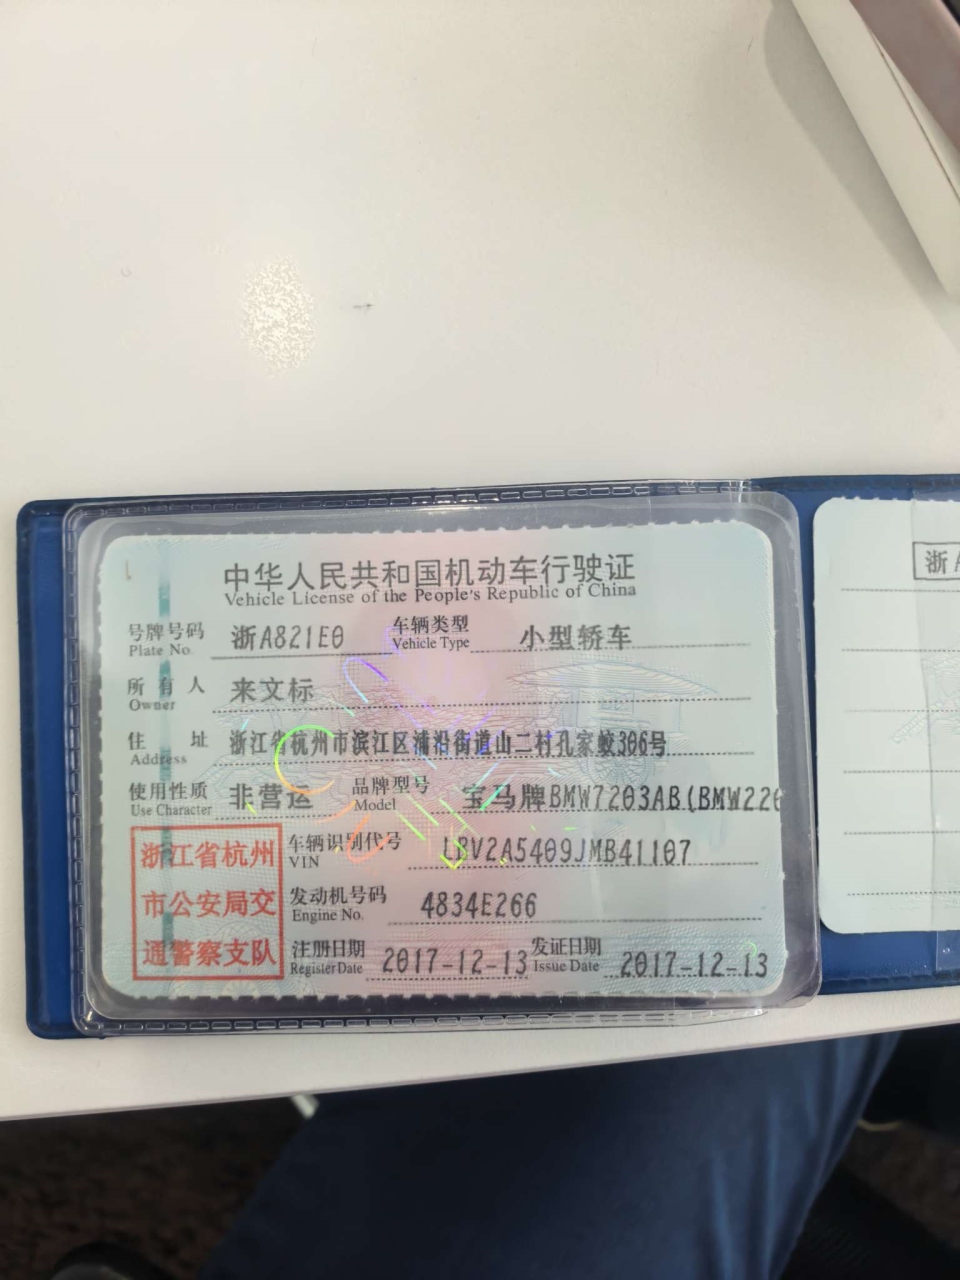 中华人民共和国机动车行驶证
Vehicle License of the People's Republic of China
号牌号码 浙A821E0 车辆类型 小型轿车
Plate No. Vehicle Type
所有人 来文标
Owner
住址 浙江省杭州市滨江区浦沿街道山二村孔家蛟306号
Address
使用性质 非营运 品牌型号 宝马牌BMW7203AB(BMW220
Use Character Model
浙江省杭州
市公安局交
通警察支队
车辆识别代号 LBV2A5409JMB41107
VIN
发动机号码 4834E266
Engine No.
注册日期 2017-12-13 发证日期 2017-12-13
Register Date Issue Date
浙A